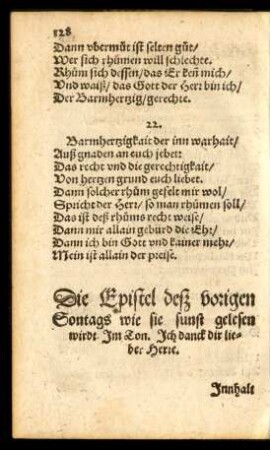 128
Dann vbermůt ist selten gůt/
Wer sich rhůmen will schlechte.
Rhům sich dessen/das Er keñ mich/
Vnd waiß/das Gott der Herr bin ich/
Der Barmhertzig/gerechte.
22.
Barmhertzigkait der inn warhait/
Auß gnaden an euch jebet:
Das recht vnd die gerechtigkait/
Von hertzen grund euch liebet.
Dann solcher rhům gefelt mir wol/
Spricht der Herr/ so man rhůmen soll/
Das ist deß rhůms recht weise/
Dann mir allain gebürd die Ehr/
Dann ich bin Gott vnd kainer mehr/
Mein ist allain der preise.
Die Epistel deß vorigen
Sontags wie sie sunst gelesen
wirdt Im Ton. Ich danck dir lie-
ber Herre.
Innhalt